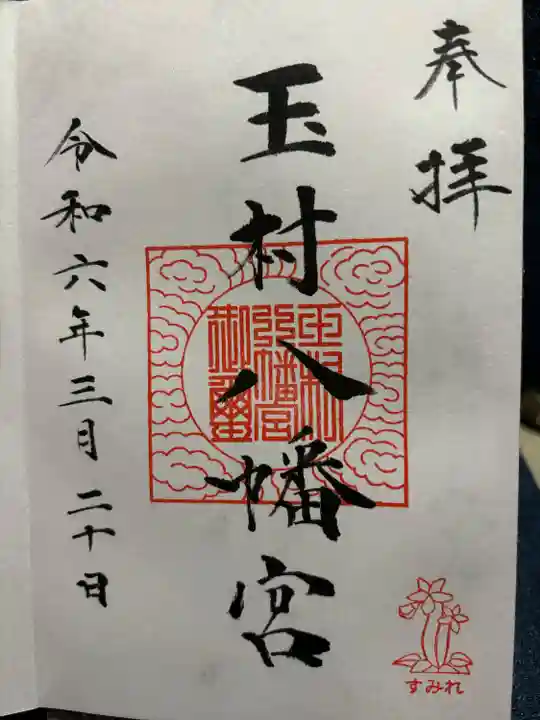 奉拝
玉村八幡宮
玉村
八幡宮
御璽
令和六年三月二十日
すみれ